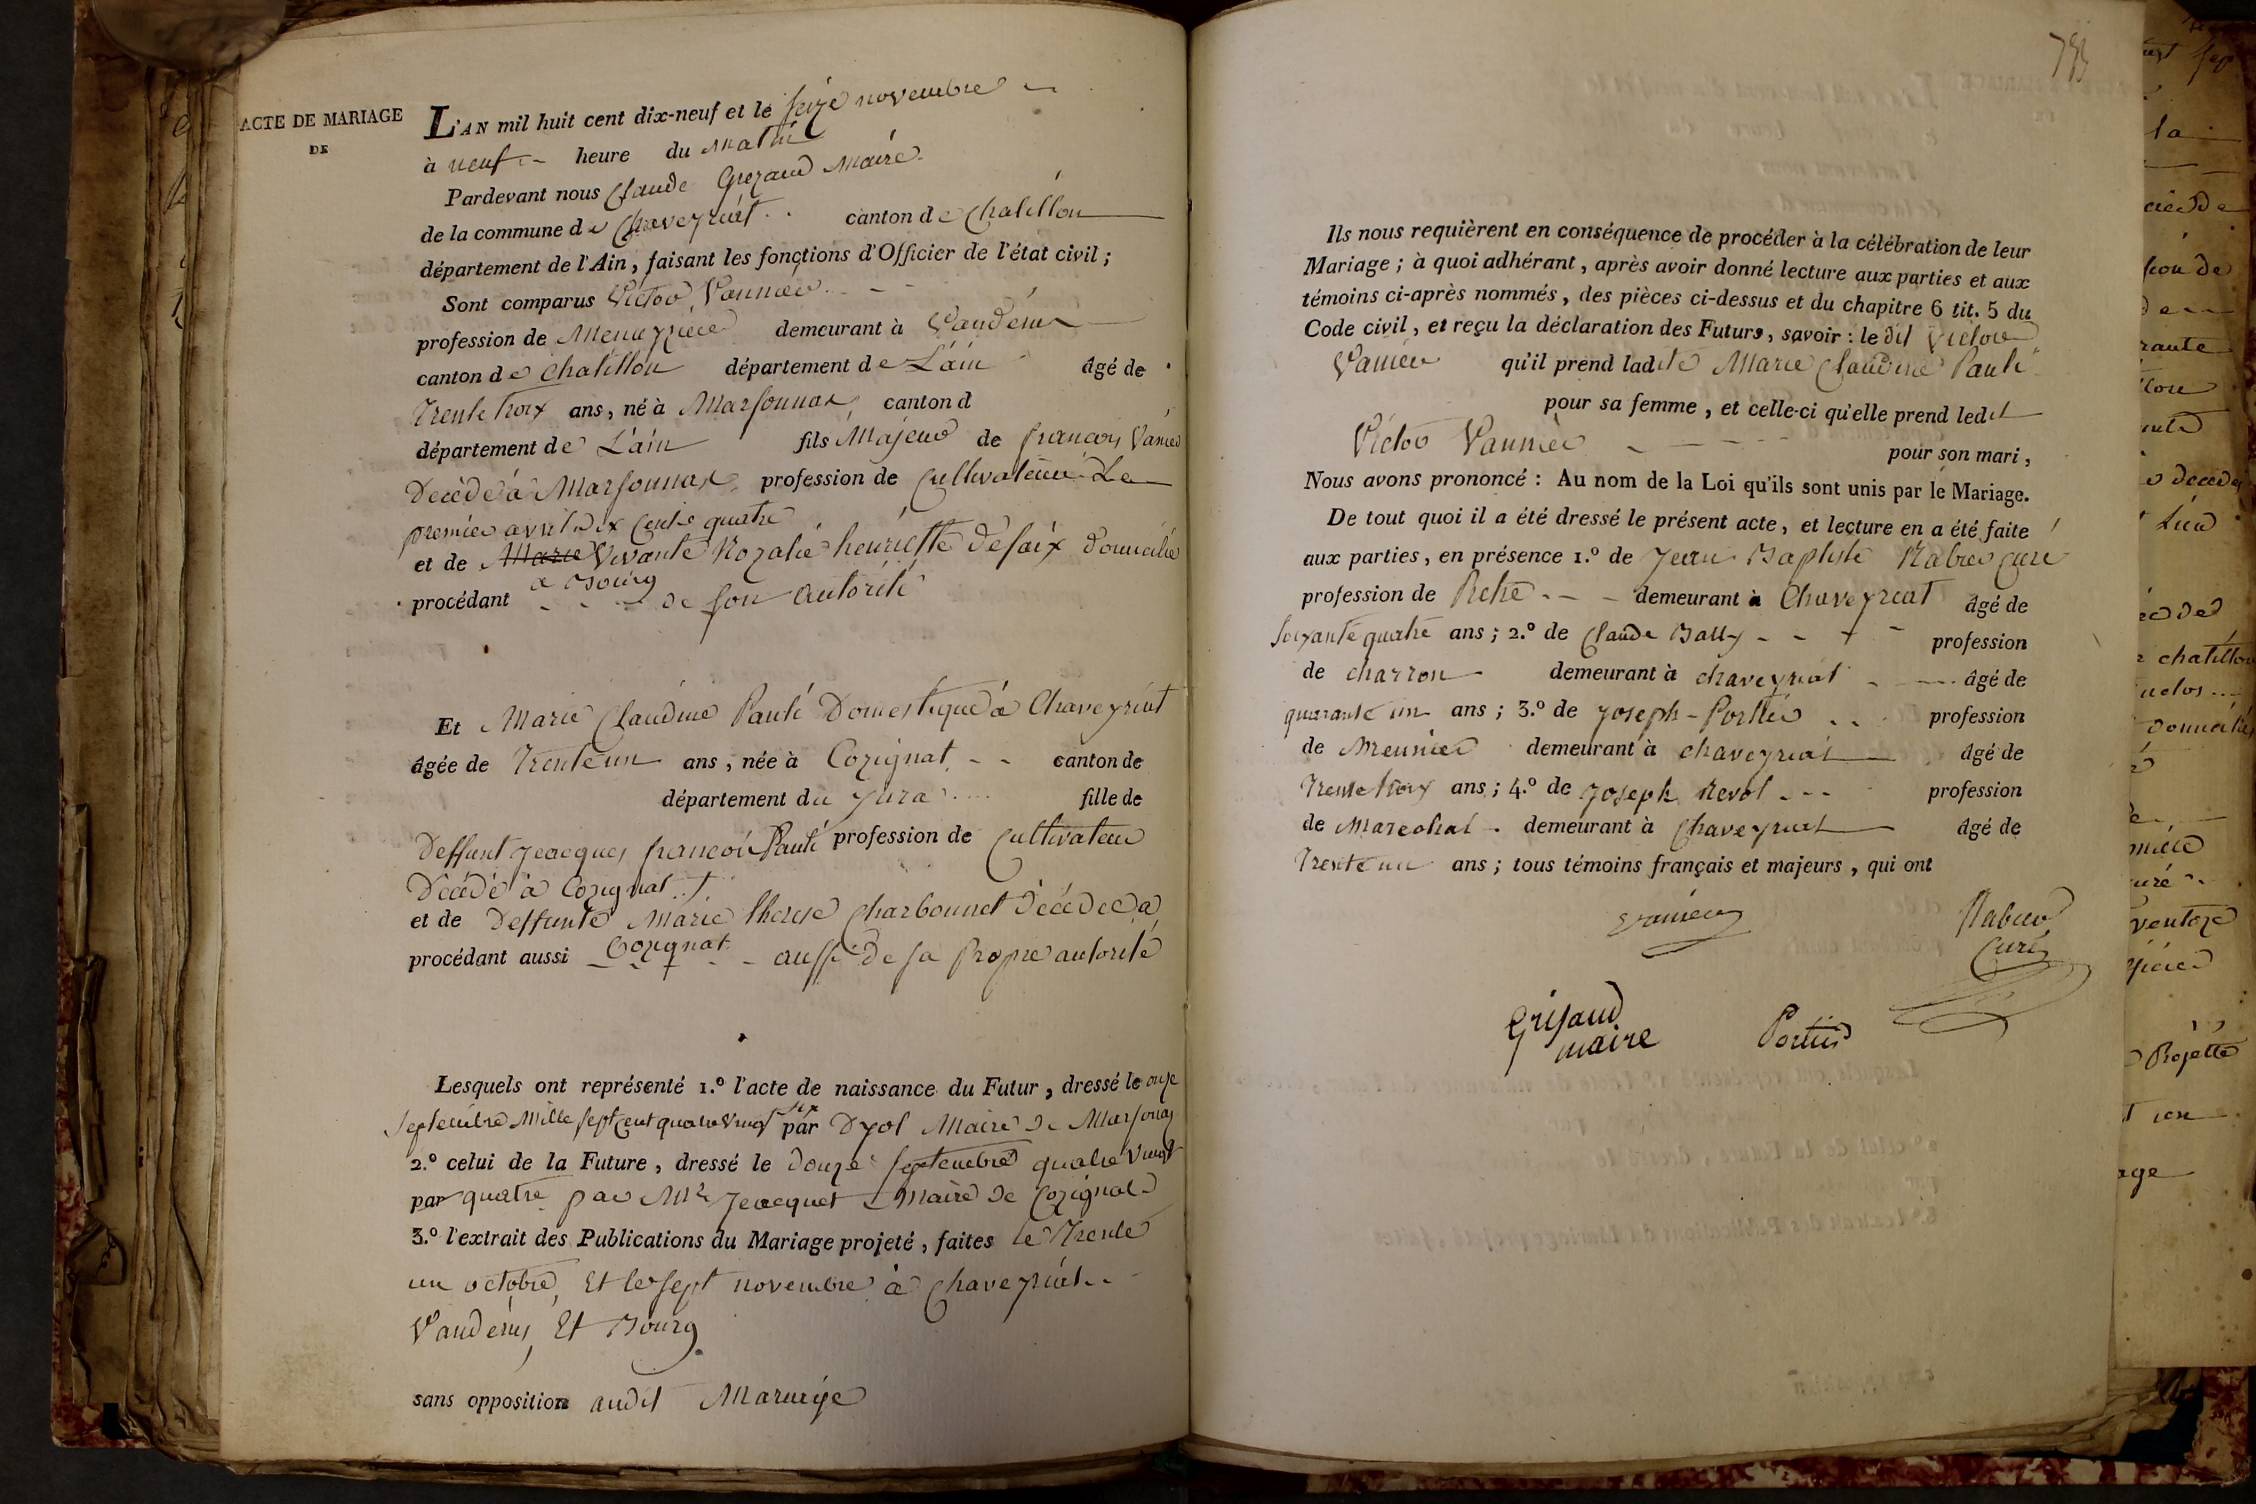 ACTE DE MARIAGE
DE
L'AN mil huit cent dix-neuf et le seize novembre
à neuf heure du matin
Pardevant nous Claude Grezaud Maire
de la commune de Chaveyriat canton de Chatillon
département de l'Ain, faisant les fonctions d'Officier de l'état civil;
Sont comparus Victor Vannier
profession de demeurant à Vandeins
canton de Chatillon département de L'ain âgé de
Trente troix ans, né à Marsonnax canton d
département de L'ain fils Majeur de francoy Vanier
Décédé à Marsonnax, profession de Cultivateur Le
premier avril dix cent quatre
et de Marie Vivante Rozalie henriette desaix domicilié
a Bourg
procédant de son autorité
Et Marie Claudine Panti Domestique à Chaveyriat
âgée de Trente un ans, née à Cozignat canton de
département du Jura fille de
Deffunt Jeacques francois Panti profession de Cultivateur
Décédé à Cozignat
et de Deffunte Marie therese Charbonnet Décédée a
Cozignat
procédant aussi aussi de sa propre autorité
Lesquels ont représenté 1.º l'acte de naissance du Futur, dressé le onze
Septembre Mille sept cent quatre vingt six par Dyol Maire de Marsonax
2.º celui de la Future, dressé le douze Septembre quatre vingt
par quatre par Mr Jeacquet Maire de Cozignat
3.º l'extrait des Publications du Mariage projeté, faites le Trente
un octobre, Et le sept novembre à Chaveyriat
Vandeins, Et Bourg
sans opposition audit Mariage
793
Ils nous requièrent en conséquence de procéder à la célébration de leur
Mariage; à quoi adhérant, après avoir donné lecture aux parties et aux
témoins ci-après nommés, des pièces ci-dessus et du chapitre 6 tit. 5 du
Code civil, et reçu la déclaration des Futurs, savoir: le dit Victor
Vanier qu'il prend ladite Marie Claudine Panti
pour sa femme, et celle-ci qu'elle prend ledit
Victor Vannier pour son mari,
Nous avons prononcé: Au nom de la Loi qu'ils sont unis par le Mariage.
De tout quoi il a été dressé le présent acte, et lecture en a été faite
aux parties, en présence 1.º de Jean Baptiste Rabuer Curé
profession de Pretre demeurant à Chaveyriat âgé de
soixante quatre ans; 2.º de Claude Bally profession
de charron demeurant à chaveyriat âgé de
quarante un ans; 3.º de Joseph Portier profession
de Meunier demeurant à chaveyriat âgé de
Trente troix ans; 4.º de Joseph Revol profession
de Marechal demeurant à Chaveyriat âgé de
Trente un ans; tous témoins français et majeurs, qui ont
Vanier Rabuer
Curé
Grisaud
maire Portier